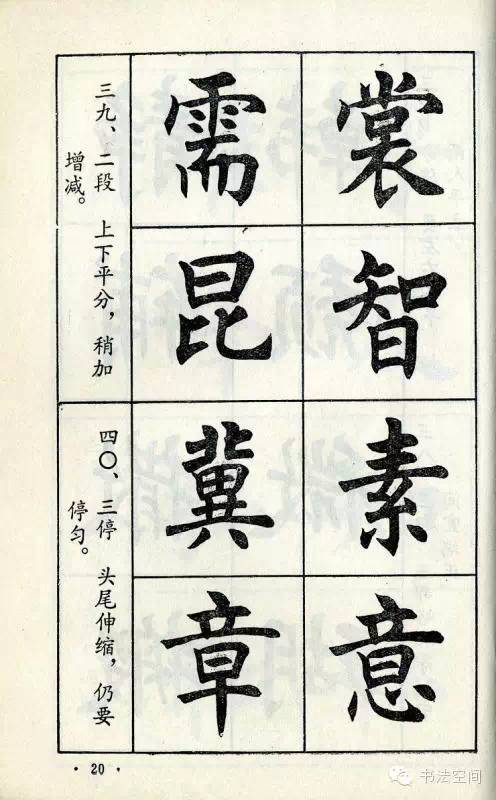 三九、二段 上下平分，稍加
增减。
裳
需
智
昆
四〇、三停 头尾伸缩，仍要
停匀。
素
冀
意
章
· 20 ·
书法空间